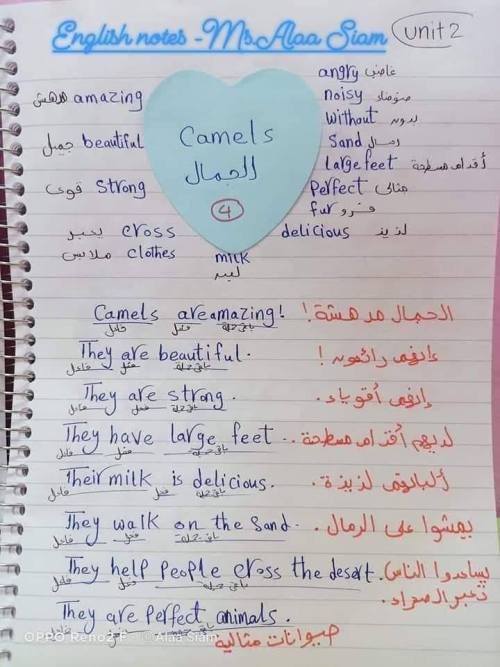 English notes - Ms.Alaa Siam
unit 2
angry غاضب
amazing مدهش
noisy ضوضاء
without بدون
beautiful جميل
Sand رمال
Camels
الجمال
4
large feet أقدام مسطحة
Strong قوي
Perfect مثالي
fur فرو
cross يعبر
delicious لذيذ
clothes ملابس
milk
لبن
Camels are amazing! الجمال مدهشة!
فاعل فعل باقي جملة
They are beautiful. إنهم رائعون!
فاعل فعل باقي جملة
They are strong. إنهم أقوياء.
فاعل فعل باقي جملة
They have large feet.. لديهم أقدام مسطحة
فاعل فعل باقي جملة
Their milk is delicious. ألبانهم لذيذة.
فاعل فعل باقي جملة
They walk on the Sand. يمشوا على الرمال.
فاعل فعل باقي جملة
They help people cross the desert. يساعدوا الناس
فاعل فعل باقي جملة
تعبر الصحراء.
They are Perfect animals.
حيوانات مثالية
OPPO Reno2 F © Alaa Siam